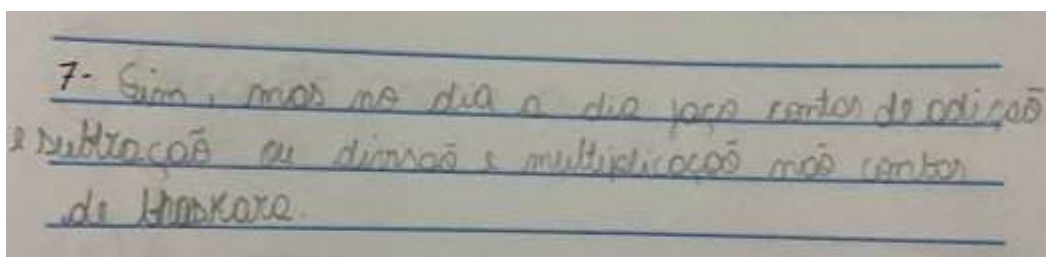 7- Sim, mas no dia a dia faço contas de adiçaõ
e subtraçaõ ou divisaõ e multiplicaçaõ naõ contas
de bhaskara.